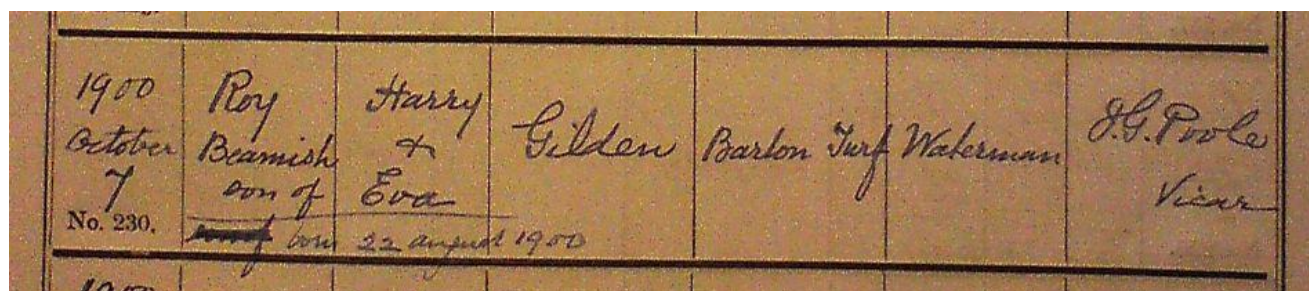 1900
October
7
No. 230.
Roy
Beamish
son of
Harry
&
Eva
Gilden
Barton Turf
Waterman
J.G. Poole
Vicar
born 22 august 1900
1900